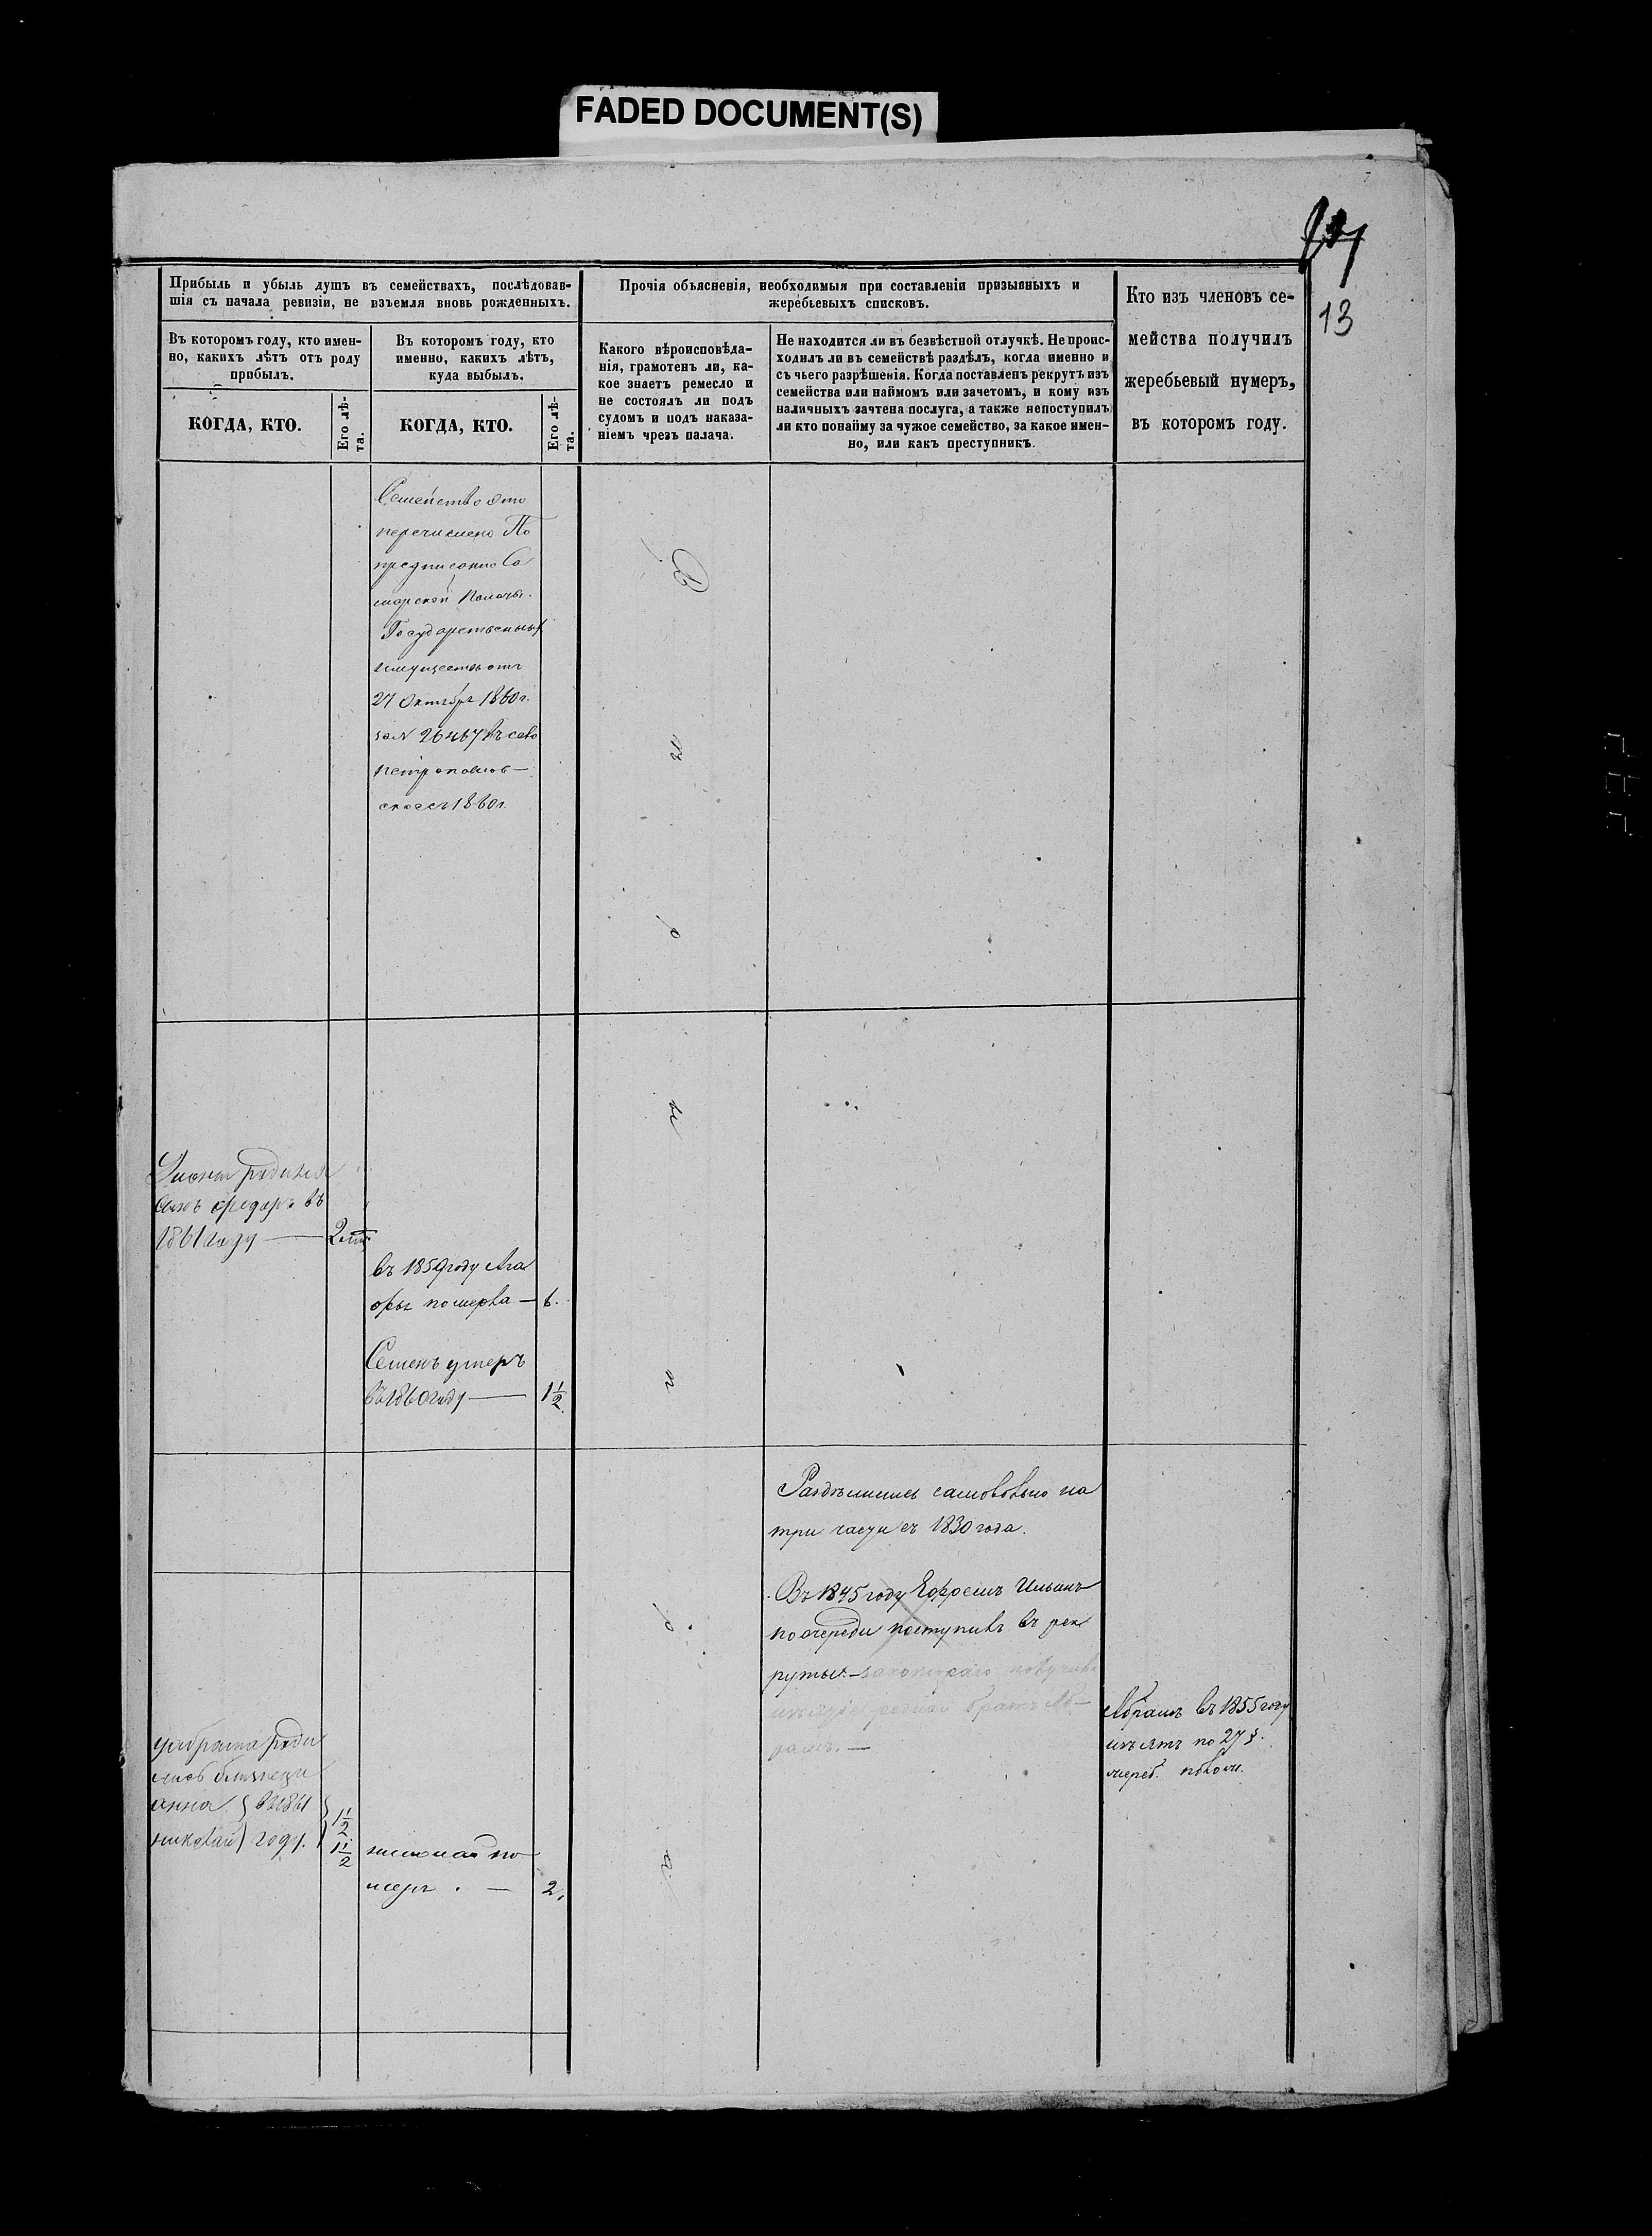 FADED DOCUMENT(S)
13
Прибыль и убыль душъ въ семействахъ, послѣдовав-
шія съ начала ревизіи, не взъемля вновь рожденныхъ.
Прочія объясненія, необходимыя при составленіи призывныхъ и
жеребьевыхъ списковъ.
Кто изъ членовъ се-
мейства получилъ
жеребьевый нумеръ,
въ которомъ году.
Въ которомъ году, кто имен-
но, какихъ лѣтъ отъ роду
прибылъ.
Въ которомъ году, кто
именно, какихъ лѣтъ,
куда выбылъ.
Какого вѣроисповѣда-
нія, грамотенъ ли, ка-
кое знаетъ ремесло и
не состоялъ ли подъ
судомъ и подъ наказа-
ніемъ чрезъ палача.
Не находится ли въ безвѣстной отлучкѣ. Не проис-
ходилъ ли въ семействѣ раздѣлъ, когда именно и
съ чьего разрѣшенія. Когда поставленъ рекрутъ изъ
семейства или наймомъ или зачетомъ, и кому изъ
наличныхъ зачтена послуга, а также непоступилъ
ли кто понайму за чужое семейство, за какое имен-
но, или какъ преступникъ.
КОГДА, КТО.
Его лѣ-
та.
КОГДА, КТО.
Его лѣ-
та.
Семейство это
перечислено По
предписанію Са
марской Палаты
Государственныхъ
имуществъ отъ
27 Октября 1860 г.
за N 26467 въ село
петропавлов-
ское съ 1860 г.
родился
сынъ федоръ въ
1861 году — 2
въ 1859 году Ага
фья померла — 6.
Семенъ умеръ
въ 1860 году — 1 1/2
Раздѣлились самовольно на
три части съ 1830 года.
Въ 1845 году Ефремъ Ильинъ
по очереди поступилъ въ рек
руты. —
родной братъ Аб-
рамъ. —
Абрамъ въ 1855 году
изъятъ по 27 §.
жереб. полож.
у брата роди
лись близнецы
анна } въ 1861 } 1 1/2
николай } году. } 1 1/2
николай по
меръ . — 2.
В
ѣ
р
ы
п
р
а